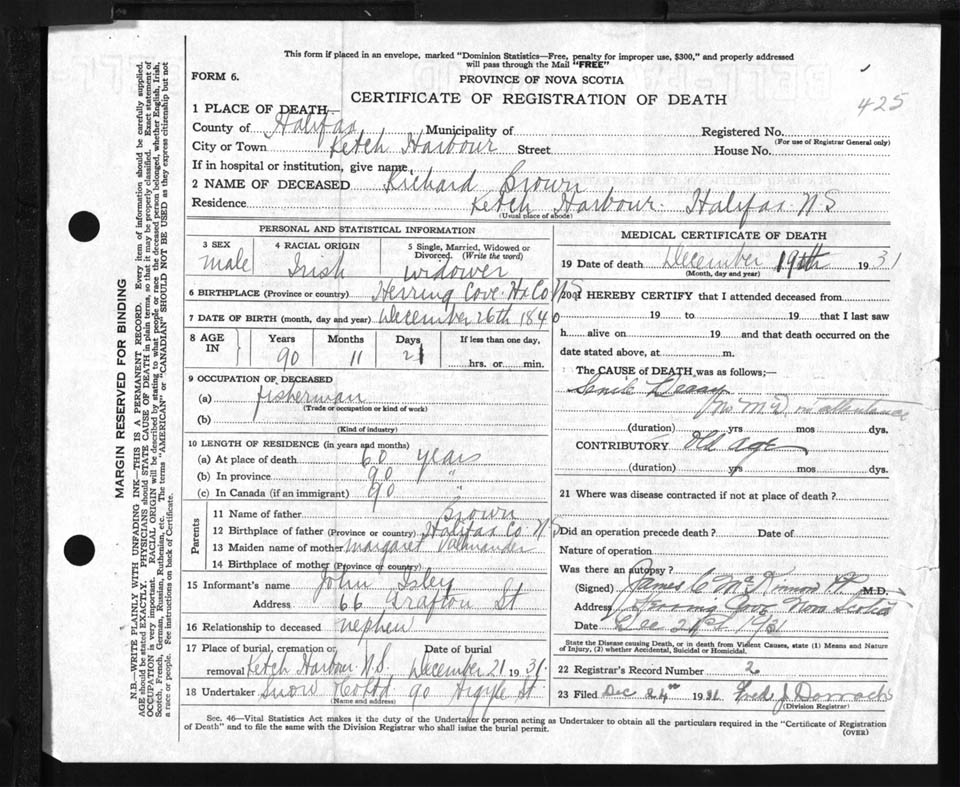 This form if placed in an envelope, marked "Dominion Statistics—Free, penalty for improper use, $300," and properly addressed
will pass through the Mail "FREE"
FORM 6.
PROVINCE OF NOVA SCOTIA
CERTIFICATE OF REGISTRATION OF DEATH
425
1 PLACE OF DEATH—
County of Halifax Municipality of Registered No.
(For use of Registrar General only)
City or Town Ketch Harbour Street House No.
If in hospital or institution, give name
2 NAME OF DECEASED Richard Brown
Residence Ketch Harbour. Halifax. N S
(Usual place of abode)
PERSONAL AND STATISTICAL INFORMATION
3 SEX 4 RACIAL ORIGIN 5 Single, Married, Widowed or
Divorced. (Write the word)
Male Irish widower
6 BIRTHPLACE (Province or country) Herring Cove. Hx Co NS
7 DATE OF BIRTH (month, day and year) December 26th 1840
8 AGE IN Years Months Days If less than one day,
90 11 21 hrs. or min.
9 OCCUPATION OF DECEASED
(a) fisherman
(Trade or occupation or kind of work)
(b)
(Kind of industry)
10 LENGTH OF RESIDENCE (in years and months)
(a) At place of death 60 years
(b) In province 90 "
(c) In Canada (if an immigrant) 90 "
Parents
11 Name of father Brown
12 Birthplace of father (Province or country) Halifax Co N S
13 Maiden name of mother Margaret
14 Birthplace of mother (Province or country)
15 Informant's name John Isley
Address 66 Grafton St
16 Relationship to deceased nephew
17 Place of burial, cremation or Date of burial
removal Ketch Harbour. N.S. December 21 1931.
18 Undertaker Snow & Co Ltd. 90 Argyle St.
(Name and address)
MEDICAL CERTIFICATE OF DEATH
19 Date of death December 19th 1931
(Month, day and year)
20 I HEREBY CERTIFY that I attended deceased from
19 to 19 that I last saw
h alive on 19 and that death occurred on the
date stated above, at m.
The CAUSE of DEATH was as follows;—
Senile Decay
(No M.D. in attendance
(duration) yrs mos dys.
CONTRIBUTORY Old age
(duration) yrs mos dys.
21 Where was disease contracted if not at place of death ?
Did an operation precede death ? Date of
Nature of operation
Was there an autopsy ?
(Signed) James C McKinnon M.D.
Address Herring Cove Nova Scotia
Date Dec 21st 1931
State the Disease causing Death, or in death from Violent Causes, state (1) Means and Nature
of Injury, (2) whether Accidental, Suicidal or Homicidal.
22 Registrar's Record Number 2
23 Filed Dec 24th 1931 Fred J Darrach
(Division Registrar)
Sec. 46—Vital Statistics Act makes it the duty of the Undertaker or person acting as Undertaker to obtain all the particulars required in the "Certificate of Registration
of Death" and to file the same with the Division Registrar who shall issue the burial permit.
(OVER)
MARGIN RESERVED FOR BINDING
N.B.—WRITE PLAINLY WITH UNFADING INK—THIS IS A PERMANENT RECORD. Every item of information should be carefully supplied.
AGE should be stated EXACTLY. PHYSICIANS should STATE CAUSE OF DEATH in plain terms, so that it may be properly classified. Exact statement of
OCCUPATION is very important. RACIAL ORIGIN will be described by stating to what people or race the deceased person belonged, whether English, Irish,
Scotch, French, German, Russian, Ruthenian, etc. The terms "AMERICAN" or "CANADIAN" SHOULD NOT BE USED as they express citizenship but not
a race or people. See instructions on back of Certificate.